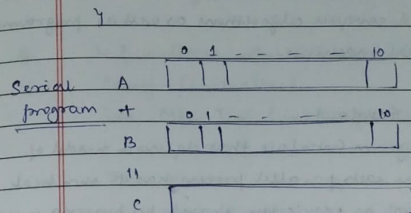 y
0 1 - - - - 10
Serial A
program +
0 1 - - - - 10
B
11
C